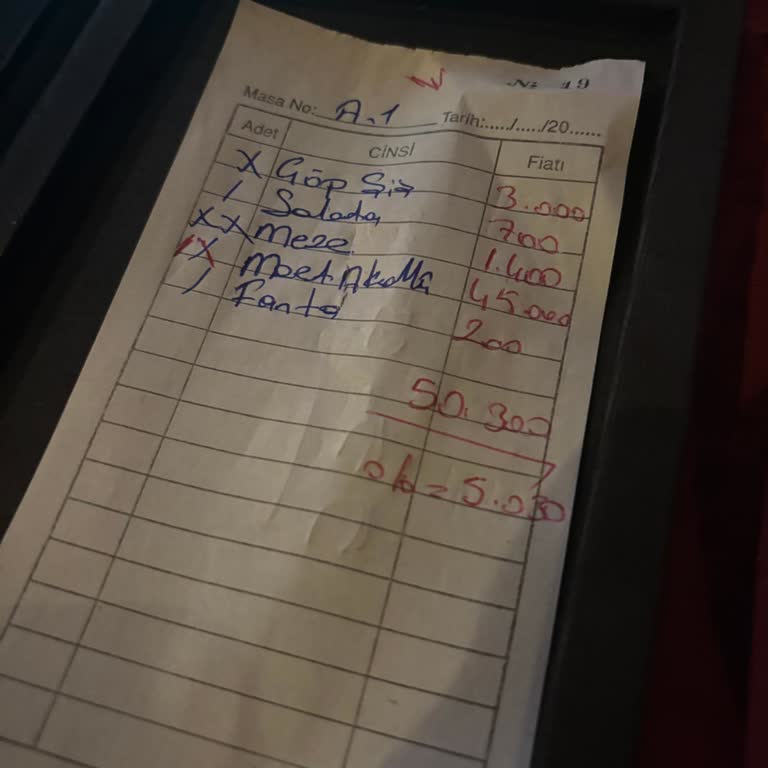 № 19
Masa No: A.1 Tarih:...../...../20......
Adet CİNSİ Fiatı
X Çöp Şiş 3.000
/ Salata 700
XX Meze 1.400
X Moet 45.000
/ Fanta 200
50.300
% = 5.030